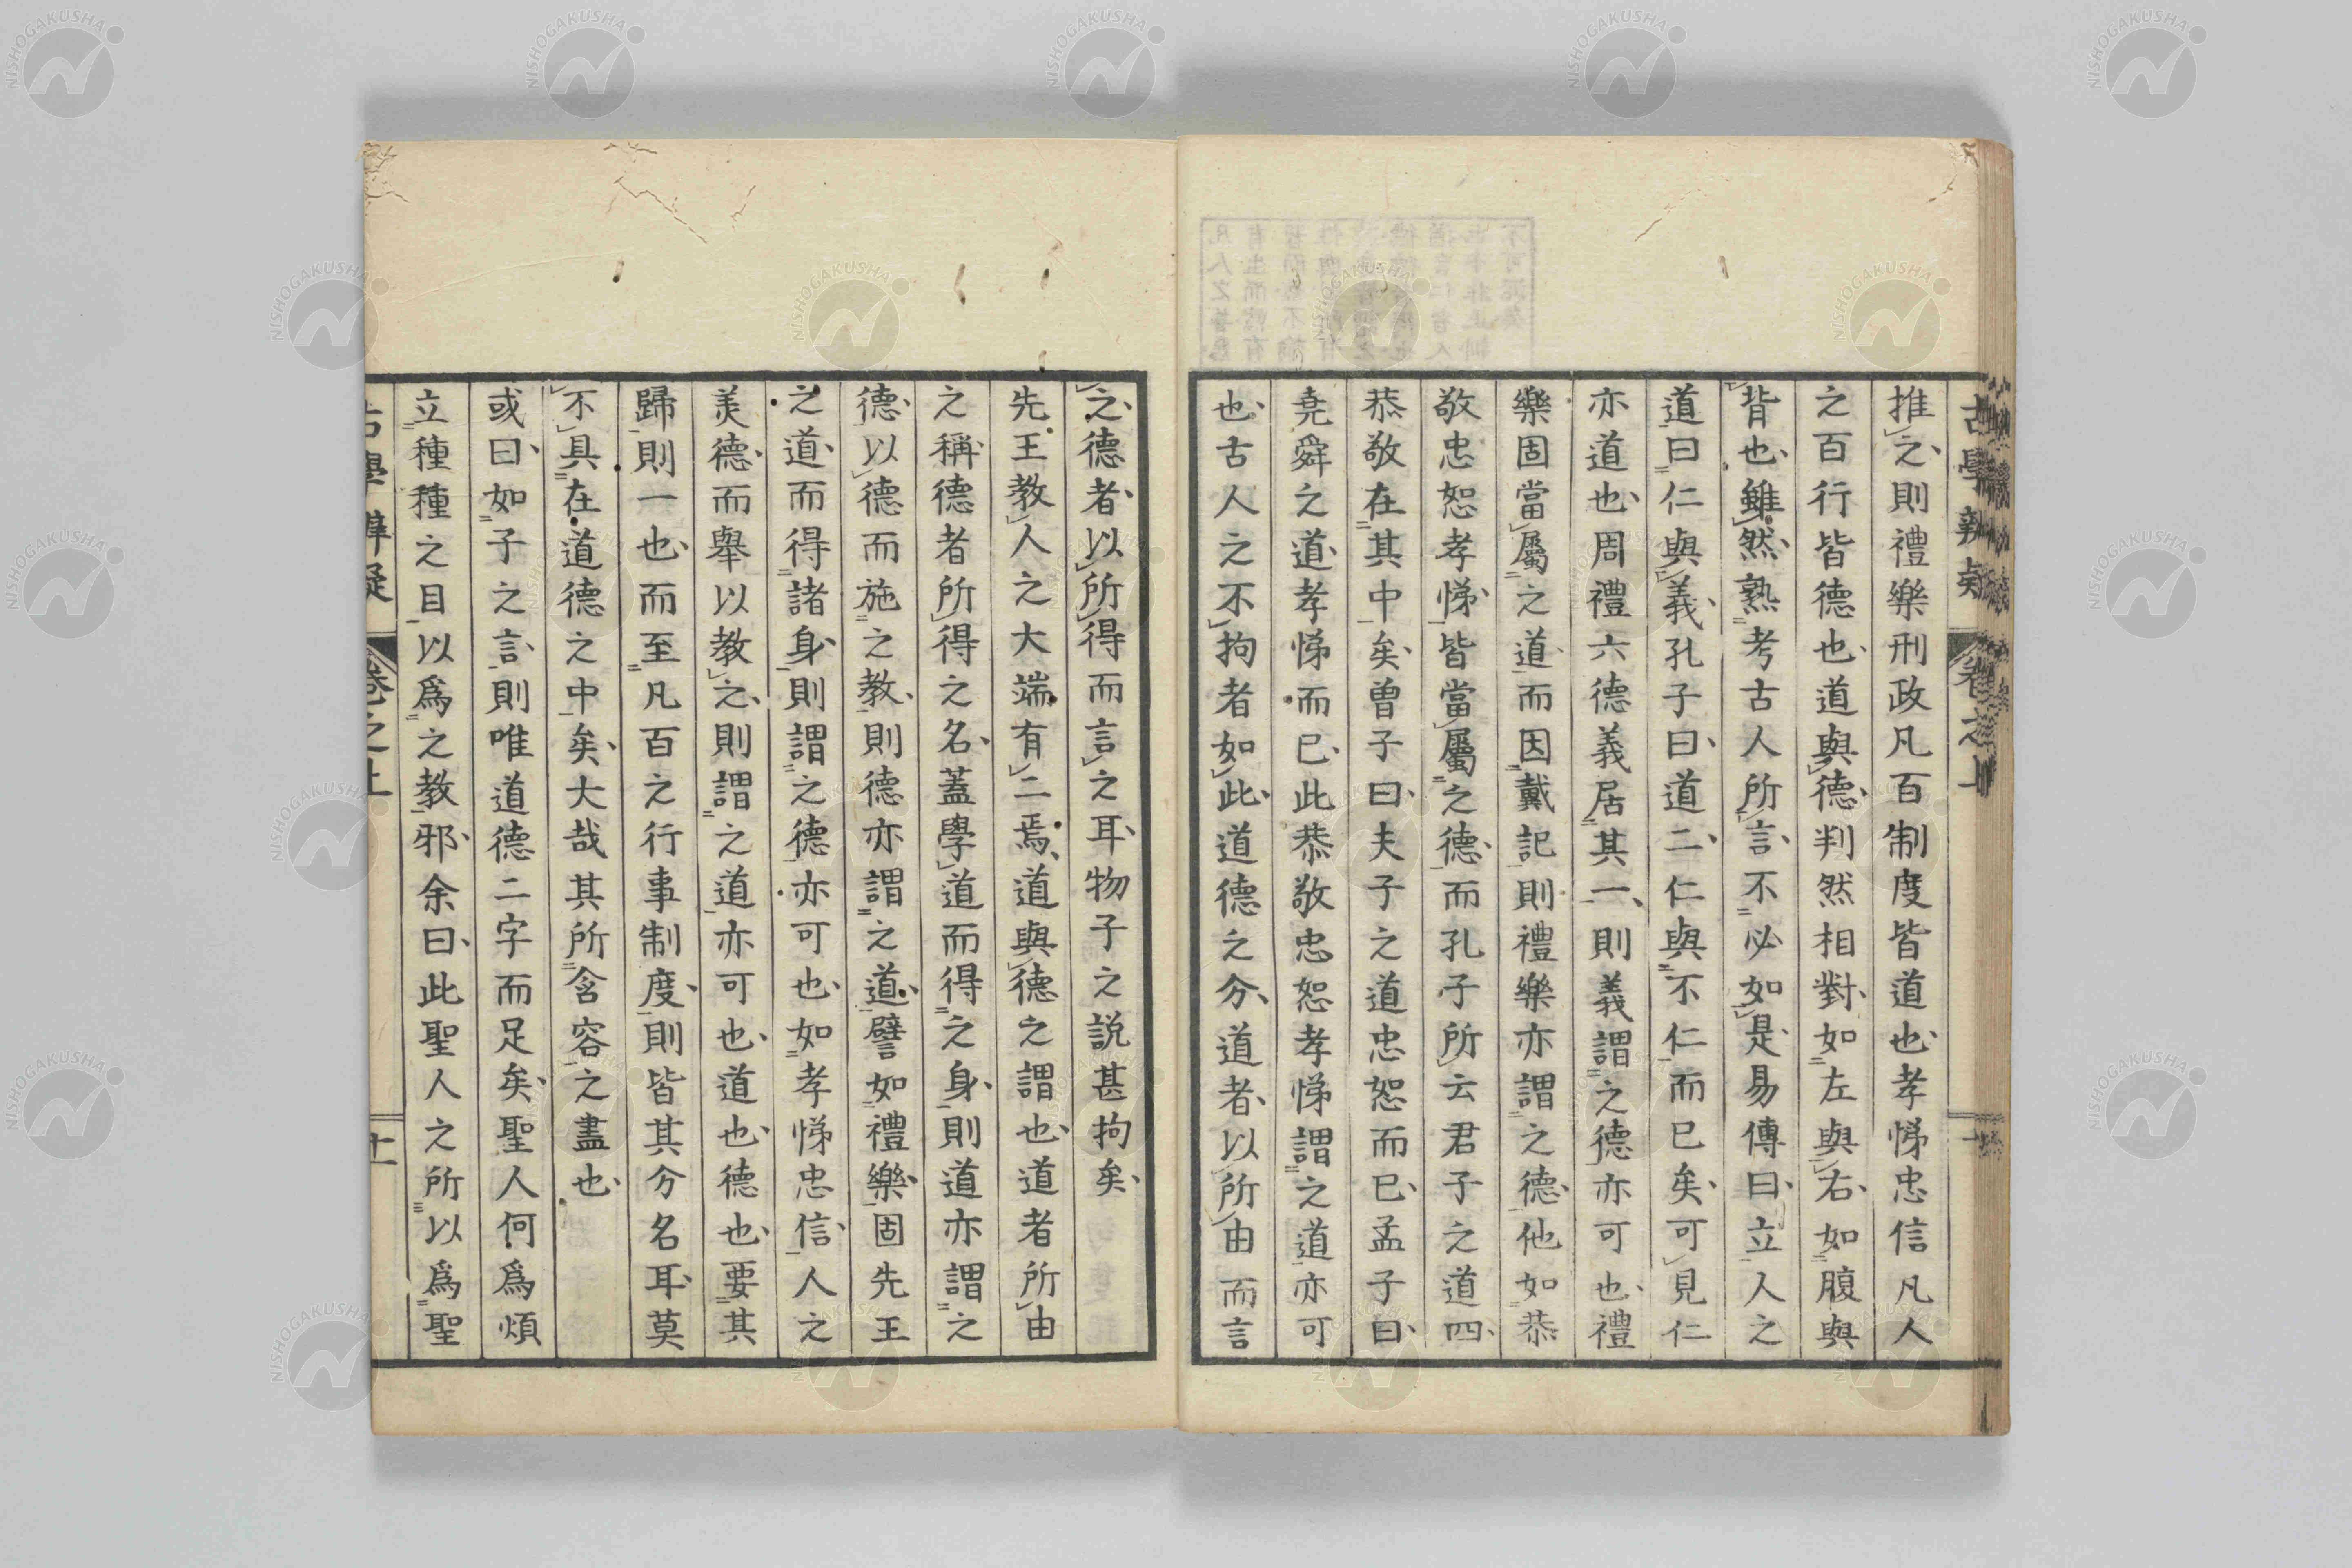 推之則禮樂刑政凡百制度皆道也孝悌忠信凡人
之百行皆德也道與德判然相對如左與右如腹與
背也雖然熟考古人所言不必如是易傳曰立人之
道曰仁與義孔子曰道二仁與不仁而已矣可見仁
亦道也周禮六德義居其一則義謂之德亦可也禮
樂固當屬之道而因戴記則禮樂亦謂之德他如恭
敬忠恕孝悌皆當屬之德而孔子所云君子之道四
恭敬在其中矣曾子曰夫子之道忠恕而已孟子曰
堯舜之道孝悌而已此恭敬忠恕孝悌謂之道亦可
也古人之不拘者如此道德之分道者以所由而言
之德者以所得而言之耳物子之説甚拘矣
先王教人之大端有二焉道與德之謂也道者所由
之稱德者所得之名蓋學道而得之身則道亦謂之
德以德而施之教則德亦謂之道譬如禮樂固先王
之道而得諸身則謂之德亦可也如孝悌忠信人之
美德而舉以教之則謂之道亦可也道也德也要其
歸則一也而至凡百之行事制度則皆其分名耳莫
不具在道德之中矣大哉其所含容之盡也
或曰如子之言則唯道德二字而足矣聖人何爲煩
立種種之目以爲之教邪余曰此聖人之所以爲聖
古學辨疑
卷之上
十一
NISHOGAKUSHA